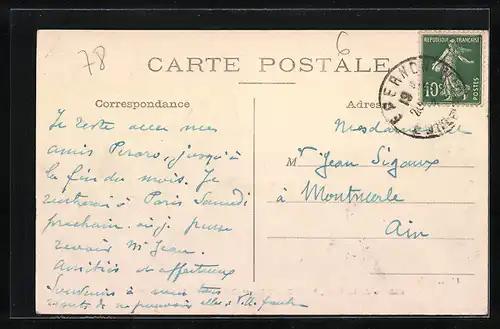 78
6
CARTE POSTALE
Correspondance
Adresse
REPUBLIQUE FRANÇAISE
10c
POSTES
EPERNO
19
Je reste avec mes
amis Pirard, jusqu'à
la fin du mois. Je
rentrerai à Paris Samedi
prochain où je pense
revoir Mr Jean.
Amitiés et affectueux
Souvenirs à vous tous
regrets de ne pouvoir aller à Villefranche
Mesdames
Mr Jean Sigaux
à Montmerle
Ain